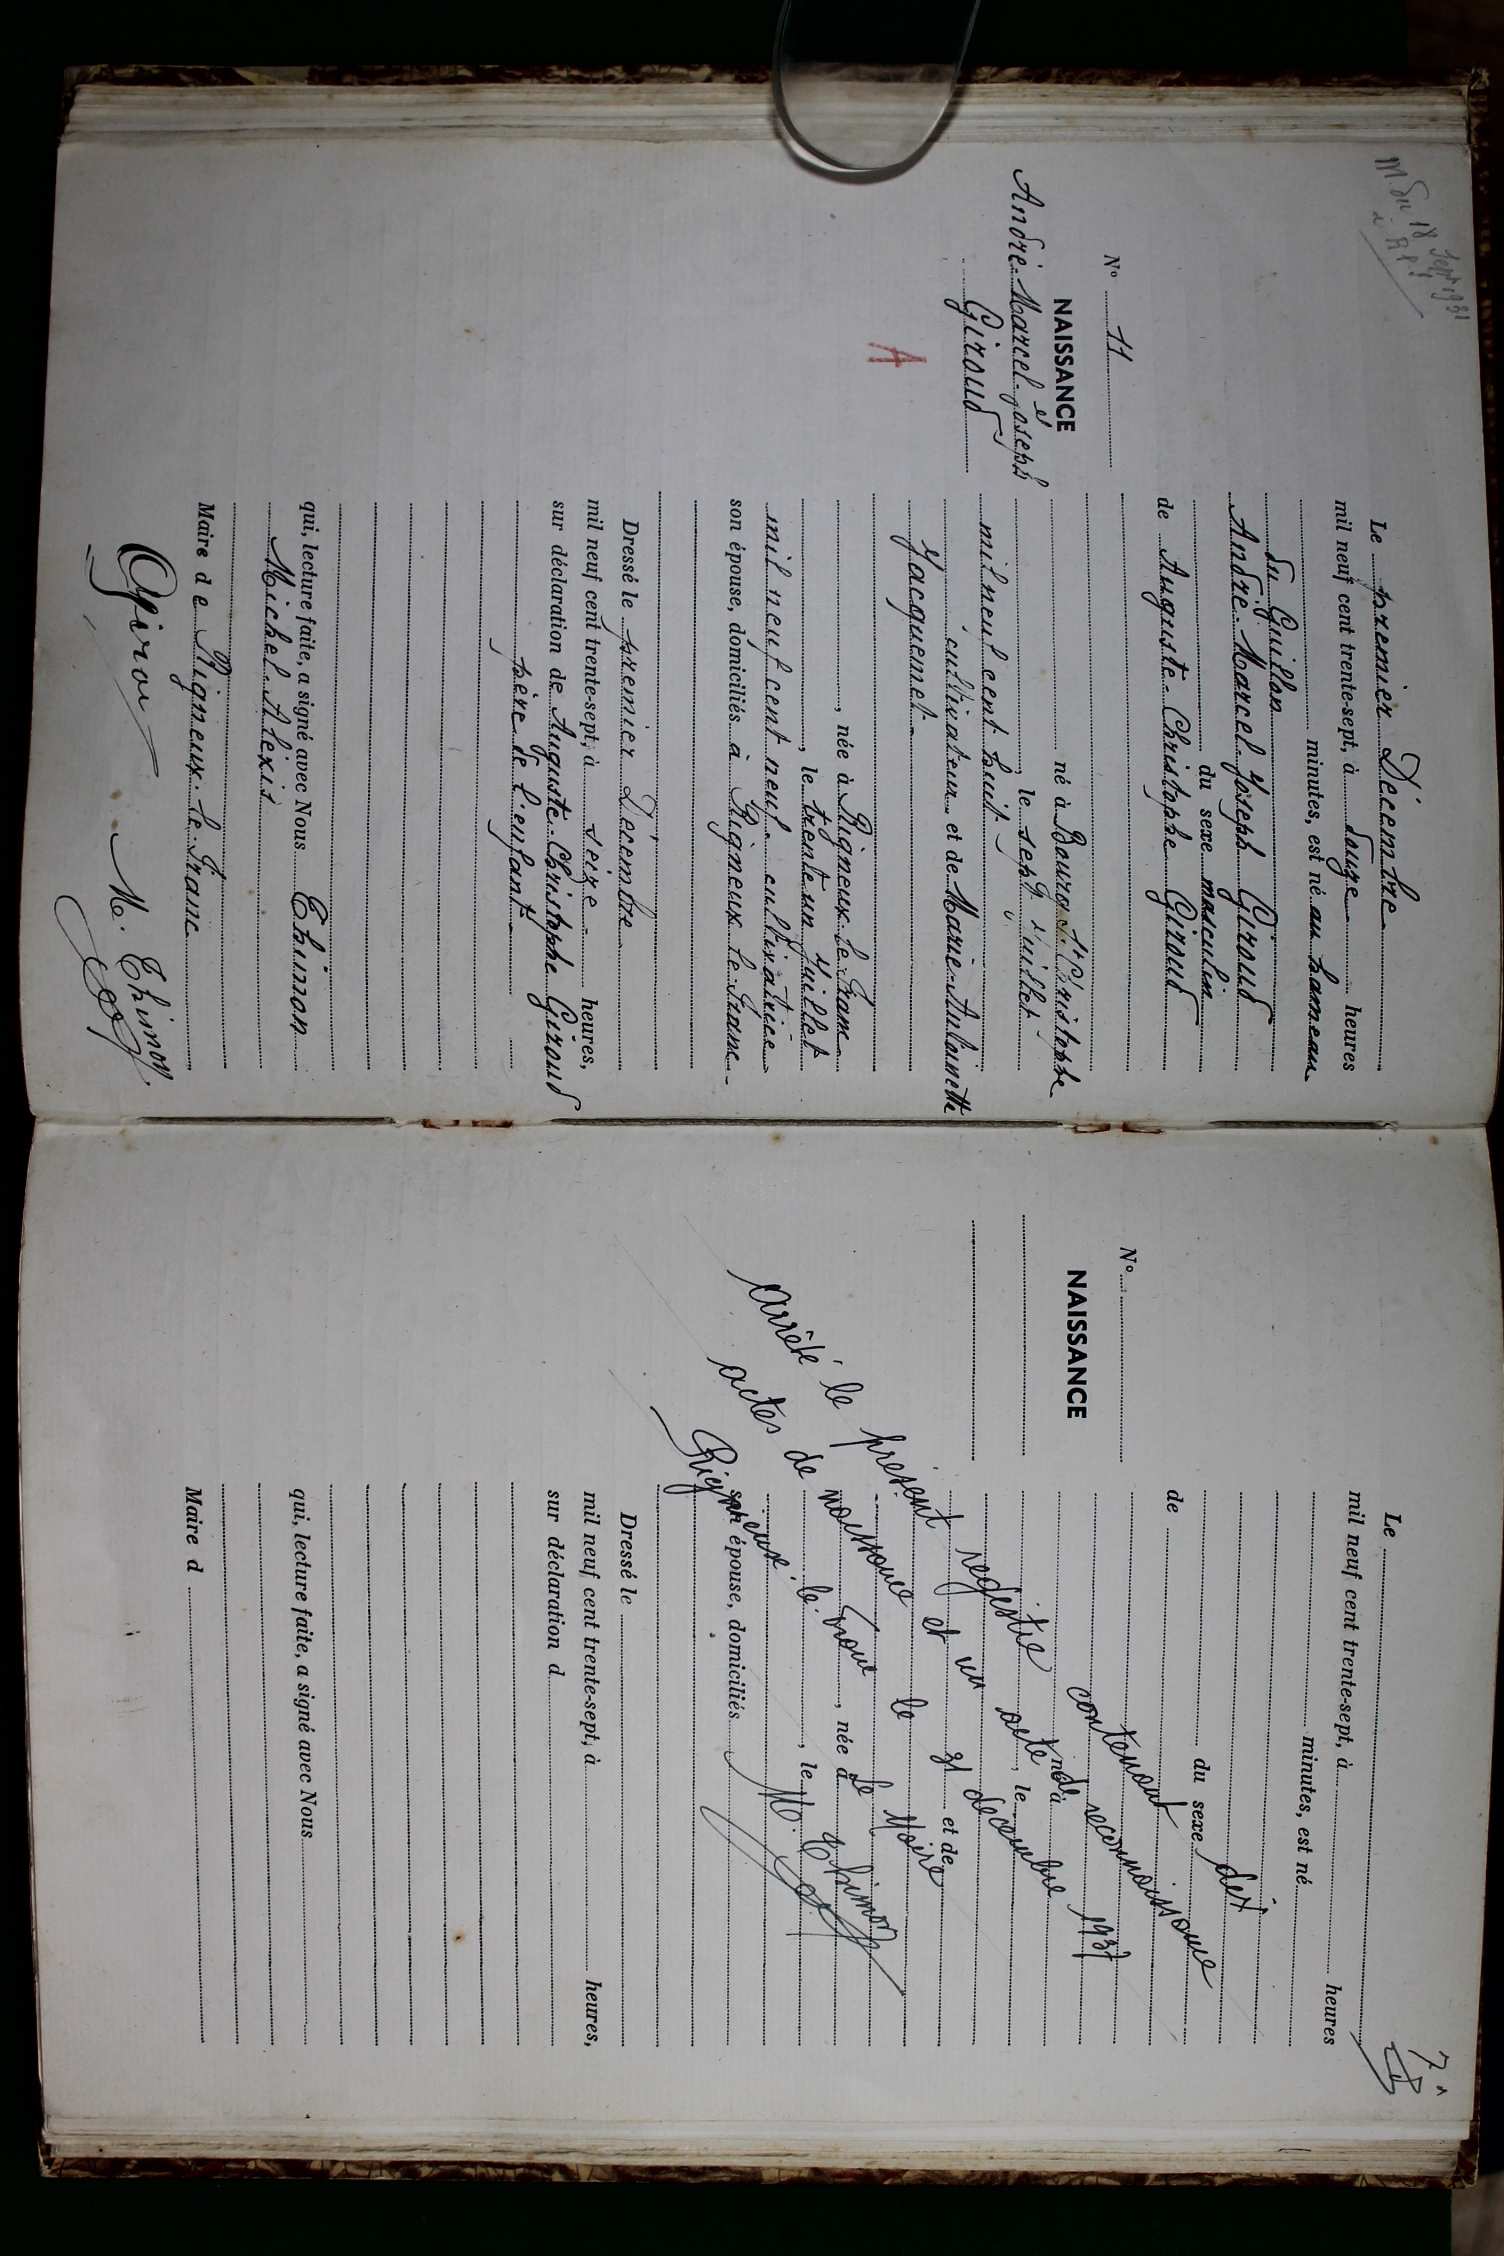 M. du 18 Sept 1931
N° 11
NAISSANCE
André-Marcel-Joseph
Giroud
A
Le premier Décembre
mil neuf cent trente-sept, à douze heures
minutes, est né au hameau
du Guillon
André-Marcel-Joseph Giroud
du sexe masculin
de Auguste-Christophe Giroud
né à Bourg St Christophe
, le sept Juillet
mil neuf cent huit
cultivateur et de Marie-Antoinette
Jacquemet
, née à Rigneux-le-Franc
, le trente un Juillet
mil neuf cent neuf cultivatrice
son épouse, domiciliés à Rigneux le Franc
Dressé le premier Décembre
mil neuf cent trente-sept, à seize heures,
sur déclaration de Auguste-Christophe Giroud
père de l'enfant
qui, lecture faite, a signé avec Nous Thinon
Michel-Alexis
Maire de Rigneux-le-Franc
Giroud
M. Thinon
7
N°
NAISSANCE
Le
mil neuf cent trente-sept, à heures
minutes, est né
du sexe
de
né à
, le
et de
, née à
, le
son épouse, domiciliés
Dressé le
mil neuf cent trente-sept, à heures,
sur déclaration d
qui, lecture faite, a signé avec Nous
Maire d
Arrêté le présent registre contenant dix
actes de naissance et un acte de reconnaissance
Rigneux-le-Franc le 31 décembre 1937
Le Maire
M. Thinon